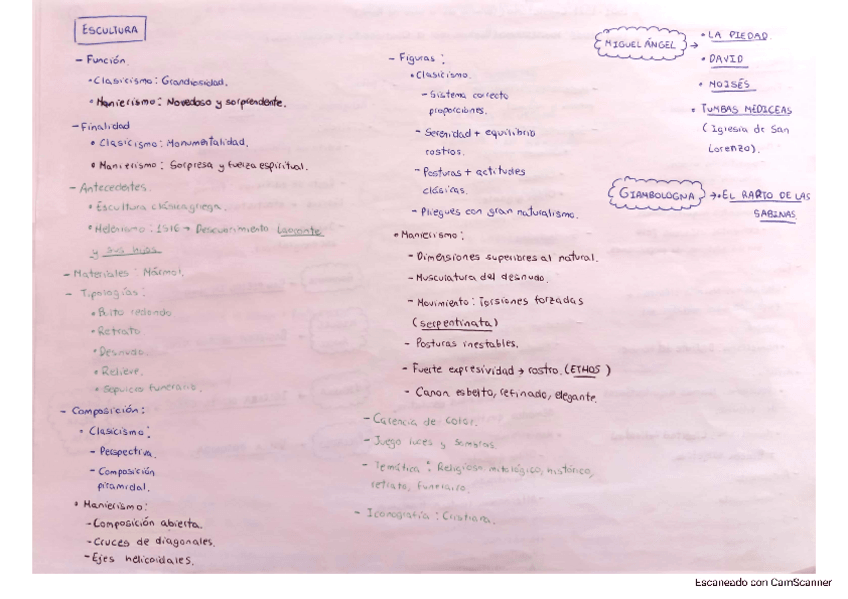 ESCULTURA
- Función.
• Clasicismo: Grandiosidad.
• Manierismo: Novedoso y sorprendente.
- Finalidad
• Clasicismo: Monumentalidad.
• Manierismo: Sorpresa y fuerza espiritual.
- Antecedentes.
• Escultura clásica griega.
• Helenismo: 1516 → Descubrimiento Laoconte
y sus hijos.
- Materiales: Mármol.
- Tipologías:
• Bulto redondo
• Retrato
• Desnudo.
• Relieve.
• Sepulcro funerario.
- Composición:
• Clasicismo:
- Perspectiva.
- Composición
piramidal.
• Manierismo:
- Composición abierta.
- Cruces de diagonales.
- Ejes helicoidales.
- Figuras:
• Clasicismo.
- Sistema correcto
proporciones.
- Serenidad + equilibrio
rostros.
- Posturas + actitudes
clásicas.
- Pliegues con gran naturalismo.
• Manierismo:
- Dimensiones superiores al natural.
- Musculatura del desnudo.
- Movimiento: Torsiones forzadas
(serpentinata)
- Posturas inestables.
- Fuerte expresividad → rostro. (ETHOS)
- Canon esbelto, refinado, elegante.
- Carencia de color.
- Juego luces y sombras
- Temática: Religioso, mitológico, histórico,
retrato, funerario.
- Iconografía: Cristiana.
MIGUEL ÁNGEL →
• LA PIEDAD
• DAVID
• MOISÉS
• TUMBAS MEDICEAS
(Iglesia de San
Lorenzo).
GIAMBOLOGNA → • EL RAPTO DE LAS
SABINAS
Escaneado con CamScanner